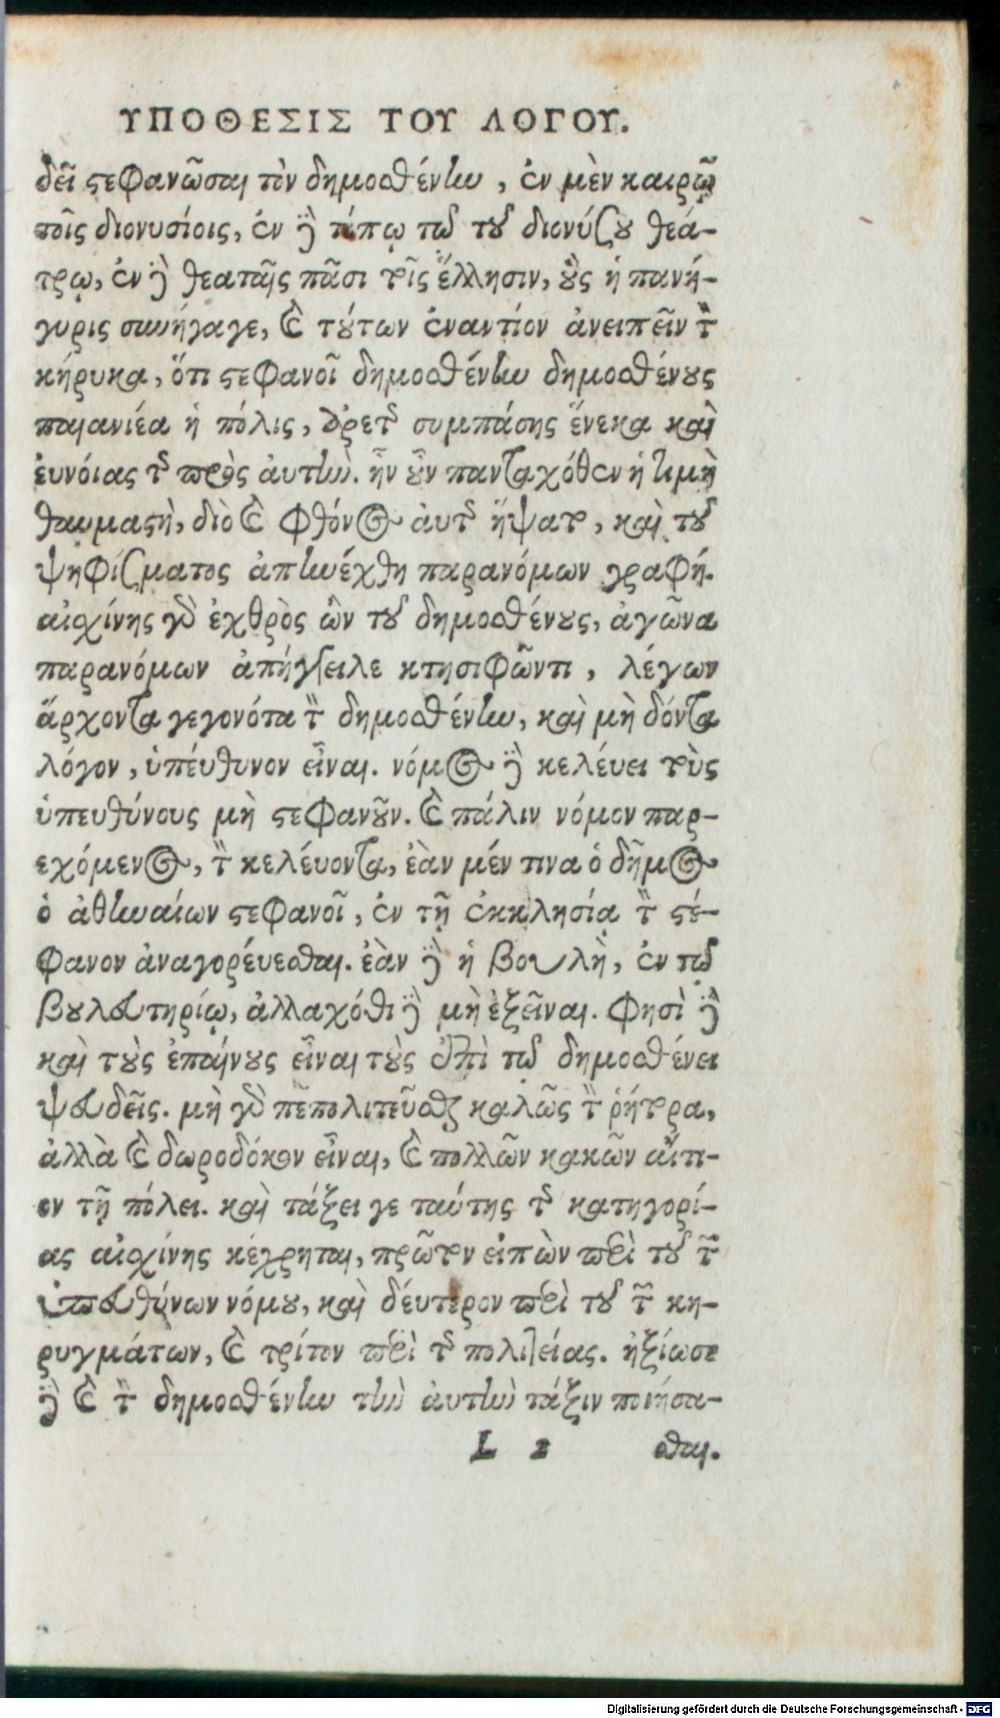 ΥΠΟΘΕΣΙΣ ΤΟΥ ΛΟΓΟΥ.
δεῖ στεφανῶσαι τὸν δημοσθένην, ἐν μὲν καιρῷ
τοῖς διονυσίοις, ἐν δὲ τόπῳ τῷ τοῦ διονύσου θεά-
τρῳ, ἐν δὲ θεαταῖς πᾶσι τοῖς ἕλλησιν, οὓς ἡ πανή-
γυρις συνήγαγε, καὶ τούτων ἐναντίον ἀνειπεῖν τὸν
κήρυκα, ὅτι στεφανοῖ δημοσθένην δημοσθένους
παιανιέα ἡ πόλις, ἀρετῆς συμπάσης ἕνεκα καὶ
ἐυνόιας τῆς πρὸς ἀυτήν. ἦν οὖν πανταχόθεν ἡ τιμὴ
θαυμαστὴ, διὸ καὶ φθόνος ἀυτῆς ἥψατο, καὶ τοῦ
ψηφίσματος ἀπηνέχθη παρανόμων γραφή.
αἰσχίνης γὰρ ἐχθρὸς ὢν τοῦ δημοσθένους, ἀγῶνα
παρανόμων ἀπήγγειλε κτησιφῶντι, λέγων
ἄρχοντα γεγονότα τὸν δημοσθένην, καὶ μὴ δόντα
λόγον, ὑπέυθυνον εἶναι. νόμος δὲ κελέυει τοὺς
ὑπευθύνους μὴ στεφανοῦν. καὶ πάλιν νόμον παρ-
εχόμενος, τὸν κελέυοντα, ἐὰν μέν τινα ὁ δῆμος
ὁ ἀθηναίων στεφανοῖ, ἐν τῇ ἐκκλησίᾳ τὸν στέ-
φανον ἀναγορέυεσθαι. ἐὰν δὲ ἡ βουλὴ, ἐν τῷ
βουλευτηρίῳ, ἀλλαχόθι δὲ μὴ ἐξεῖναι. φησὶ δὲ
καὶ τοὺς ἐπαίνους εἶναι τοὺς ἐπὶ τῷ δημοσθένει
ψευδεῖς. μὴ γὰρ πεπολιτεῦσθαι καλῶς τὸν ῥήτορα,
ἀλλὰ καὶ δωροδόκον εἶναι, καὶ πολλῶν κακῶν αἴτι-
ον τῇ πόλει. καὶ τάξει γε ταύτης τῆς κατηγορί-
ας αἰσχίνης κέχρηται, πρῶτον εἰπὼν περὶ τοῦ τῶν
ὑπευθύνων νόμου, καὶ δέυτερον περὶ τοῦ τῶν κη-
ρυγμάτων, καὶ τρίτον περὶ τῆς πολιτείας. ἠξίωσε
δὲ καὶ τὸν δημοσθένην τὴν ἀυτὴν τάξιν ποιήσα-
L 2 σθαι.
Digitalisierung gefördert durch die Deutsche Forschungsgemeinschaft - DFG